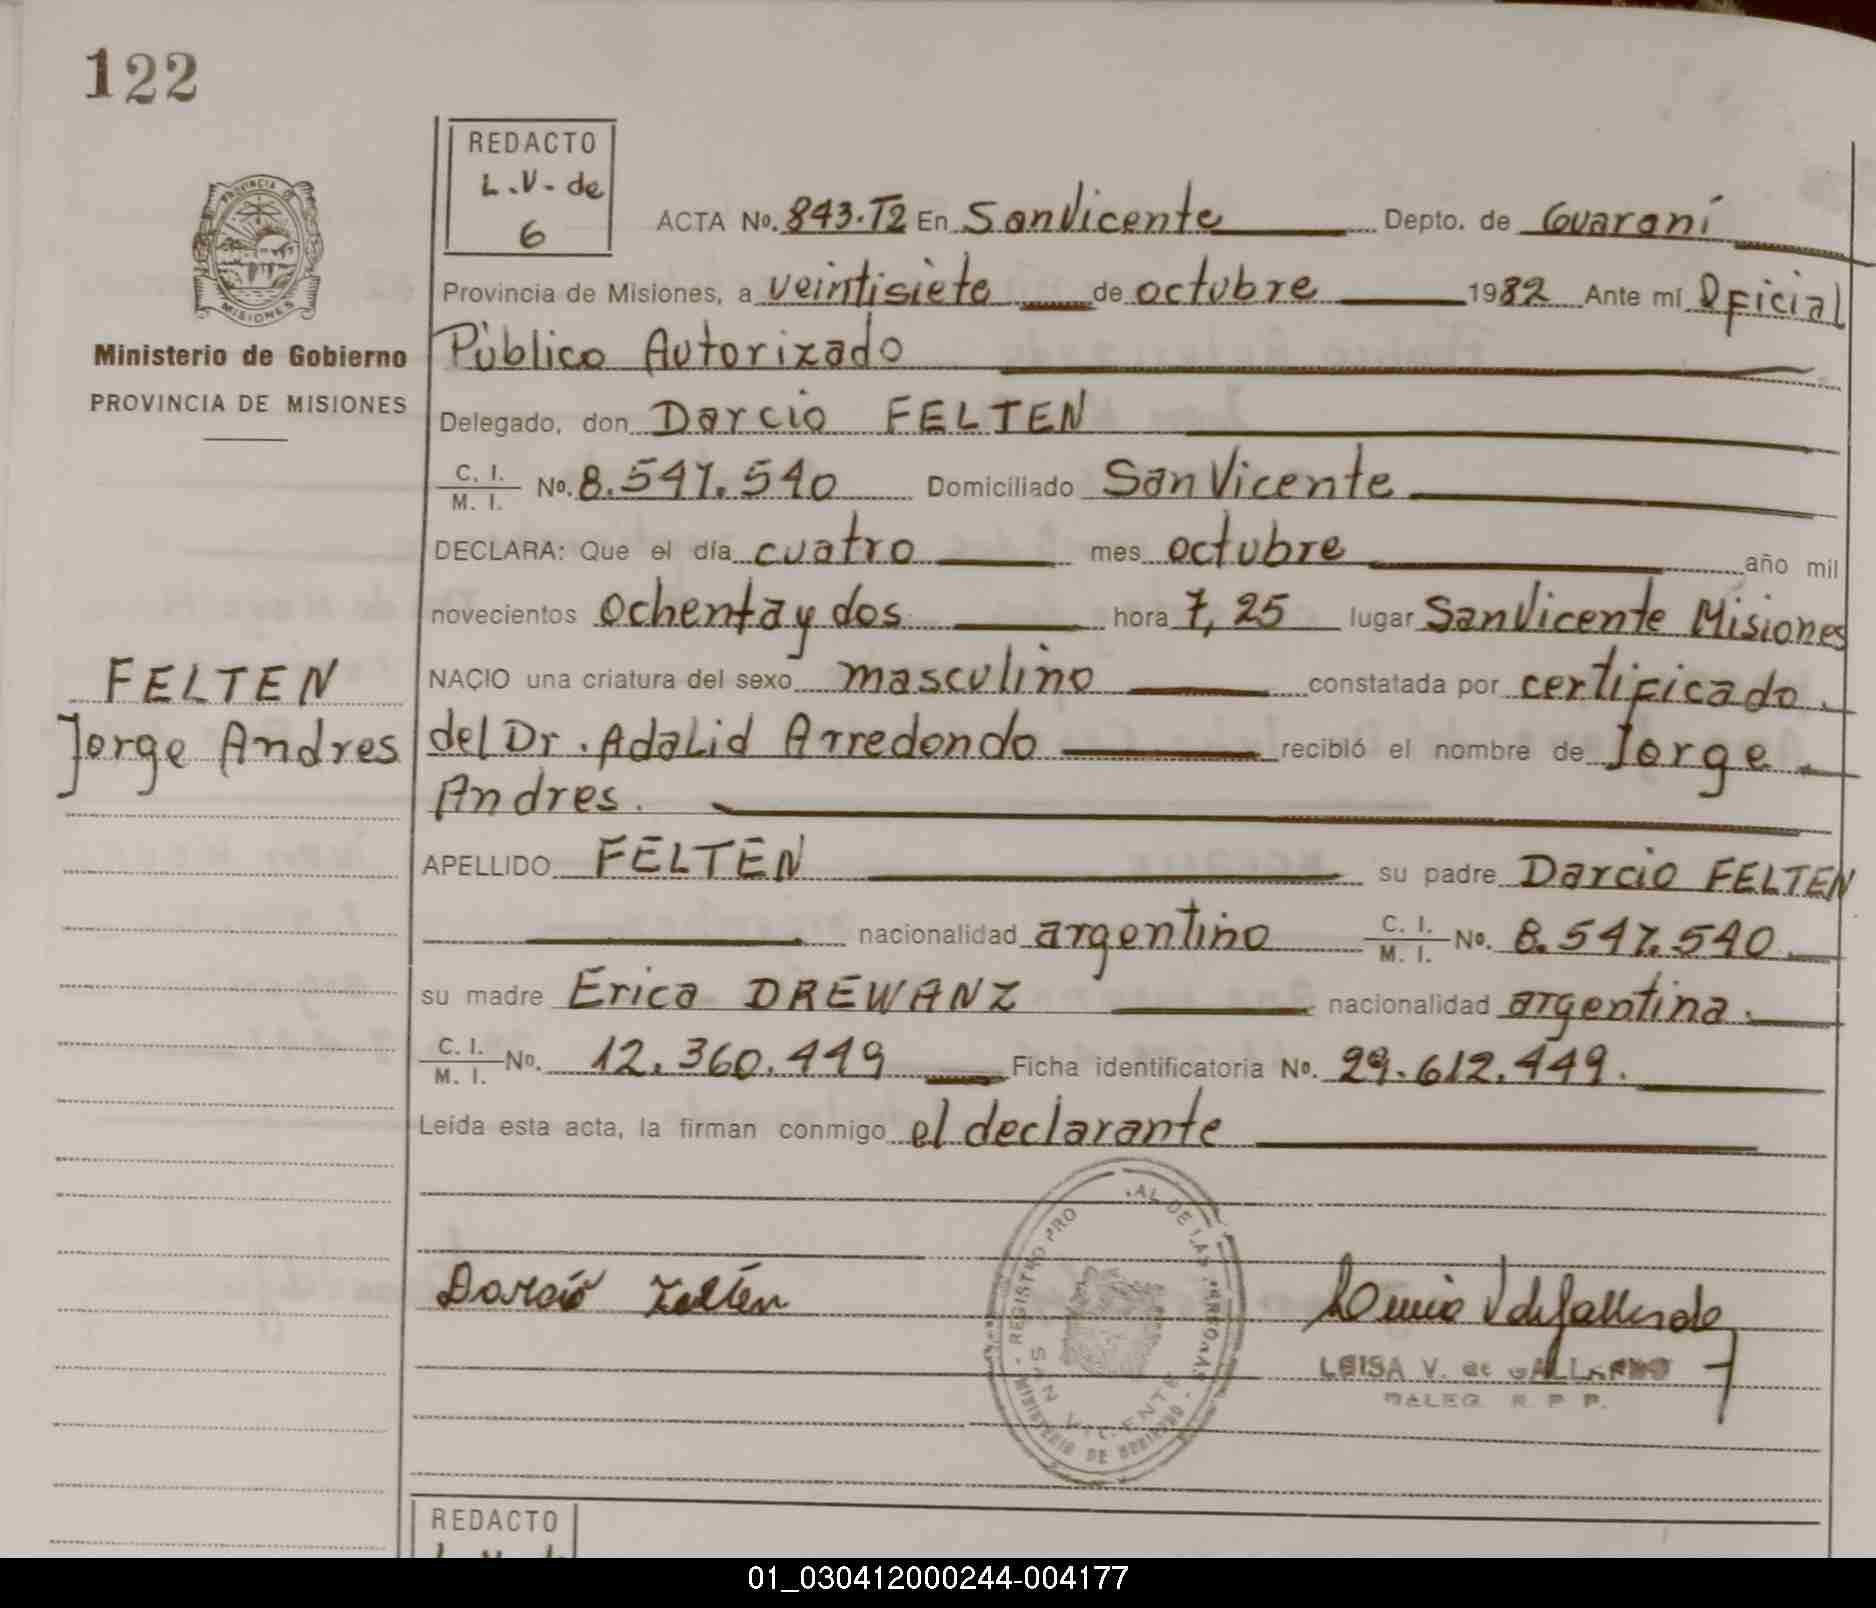 122
REDACTO
L.V. de
6
PROVINCIA
MISIONES
Ministerio de Gobierno
PROVINCIA DE MISIONES
ACTA No. 843.T2 En San Vicente Depto. de Guaraní
Provincia de Misiones, a veintisiete de octubre 1982 Ante mí Oficial
Público Autorizado
Delegado, don Darcio FELTEN
C. I.
M. I. No. 8.547.540 Domiciliado San Vicente
DECLARA: Que el día cuatro mes octubre año mil
novecientos ochenta y dos hora 7,25 lugar San Vicente Misiones
FELTEN
Jorge Andres
NACIO una criatura del sexo masculino constatada por certificado
del Dr. Adalid Arredondo recibló el nombre de Jorge
Andres.
APELLIDO FELTEN su padre Darcio FELTEN
nacionalidad argentino C. I. M. I. No. 8.547.540
su madre Erica DREWANZ nacionalidad argentina.
C. I. M. I. No. 12.360.449 Ficha identificatoria No. 29.612.449.
Leída esta acta, la firman conmigo el declarante
Darcio Felten
REGISTRO PRO AL DE LAS PERSONAS
SAN VICENTE
MINISTERIO DE GOBIERNO
LUISA V. de GALLARDO
DELEG. R. P. P.
REDACTO
01_030412000244-004177